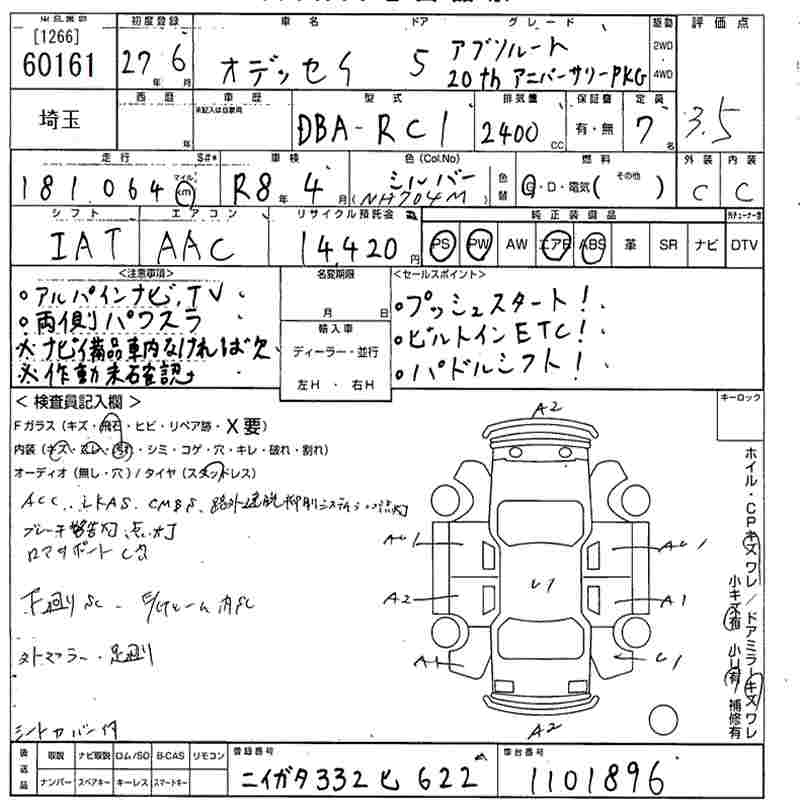 [1266]
60161
初度登録 車名 ドア グレード 駆動 評価点
27年 6月 オデッセイ 5 アブソルート
20th アニバーサリーPKG
2WD
4WD
3.5
埼玉
西暦 車歴 型式 排気量 保証書 定員
年 DBA-RC1 2400CC 有・無 7名
走行 S#* 車検 色(Col.No) 燃料 外装 内装
181,064 マイル km R8年 4月 シルバー
NH704M
色替
G・D・電気( その他 )
C C
シフト エアコン リサイクル預託金 純正装備品
IAT AAC 14,420円 PS PW AW エアB ABS 革 SR ナビ DTV
<注意事項> 名変期限 <セールスポイント>
○アルパインナビ,TV
○両側パワスラ
※ナビ備品車内なければ欠
※作動未確認
月 日
輸入車
ディーラー・並行
左H ・ 右H
○プッシュスタート!
○ビルトインETC!
○パドルシフト!
キーロック
<検査員記入欄>
Fガラス(キズ・飛石・ヒビ・リペア跡・X要)
内装(キズ・スレ・汚れ・シミ・コゲ・穴・キレ・破れ・割れ)
オーディオ(無し・穴)/タイヤ(スタッドレス)
ACC. LKAS. CMBS. 路外逸脱抑制システム
ブレーキ警告灯 点灯
下廻りSC
シートカバー付
A2
AU1 AU1
U1
A2 A1
A1 U1
A2
ホイル・CPキズワレ/ドアミラーキズワレ
小キズ有 小U有 補修有
後送品
取説 ナビ取説 ロム/SD B-CAS リモコン
ナンバー スペアキー キーレス スマートキー
登録番号 車台番号
ニイガタ 332 ヒ 622 1101896